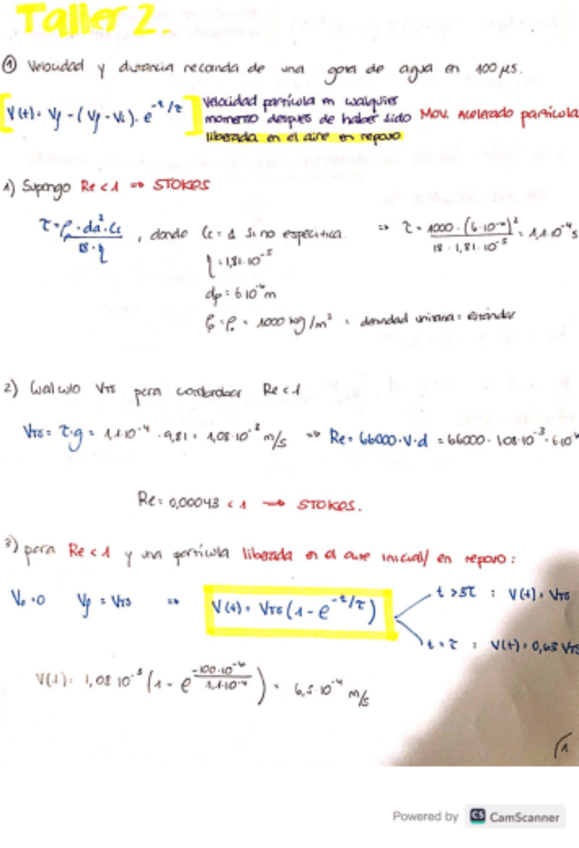 Taller 2.
① Velocidad y distancia recorrida de una gota de agua en 100 μs.
V(t) = Vf - (Vf - Vi) · e^(-t/τ)
Velocidad partícula en cualquier
momento después de haber sido
liberada en el aire en reposo
Mov. Acelerado partícula
1) Supongo Re < 1 ⇒ STOKES
τ = ρ · da² · Cc / 18 · η , donde Cc = 1 si no especifica. ⇒ τ = 1000 · (6·10⁻⁶)² / 18 · 1,81·10⁻⁵ = 1,1·10⁻⁴ s
η = 1,81·10⁻⁵
dp = 6·10⁻⁶ m
= 1000 kg/m³ = densidad unitaria = estándar
2) Calculo VTS para corroborar Re < 1
VTS = τ · g = 1,1·10⁻⁴ · 9,81 = 1,08·10⁻³ m/s ⇒ Re = 66000 · V · d = 66000 · 1,08·10⁻³ · 6·10⁻⁶
Re = 0,00043 < 1 → STOKES.
3) para Re < 1 y una partícula liberada en el aire inicial/ en reposo :
V₀ = 0 Vf = VTS ⇒ V(t) = VTS (1 - e^(-t/τ))
t > 5τ : V(t) = VTS
t = τ : V(t) = 0,63 VTS
V(t) = 1,08·10⁻³ (1 - e^(-100·10⁻⁶ / 1,1·10⁻⁴)) = 6,5·10⁻⁴ m/s
1
Powered by CS CamScanner